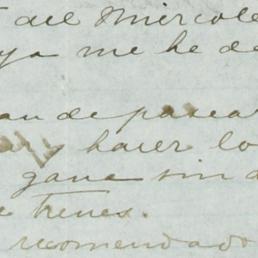 del Miercole
ya me he de
an de pasear
hacer lo
gana sin d
e trenes.
recomendado